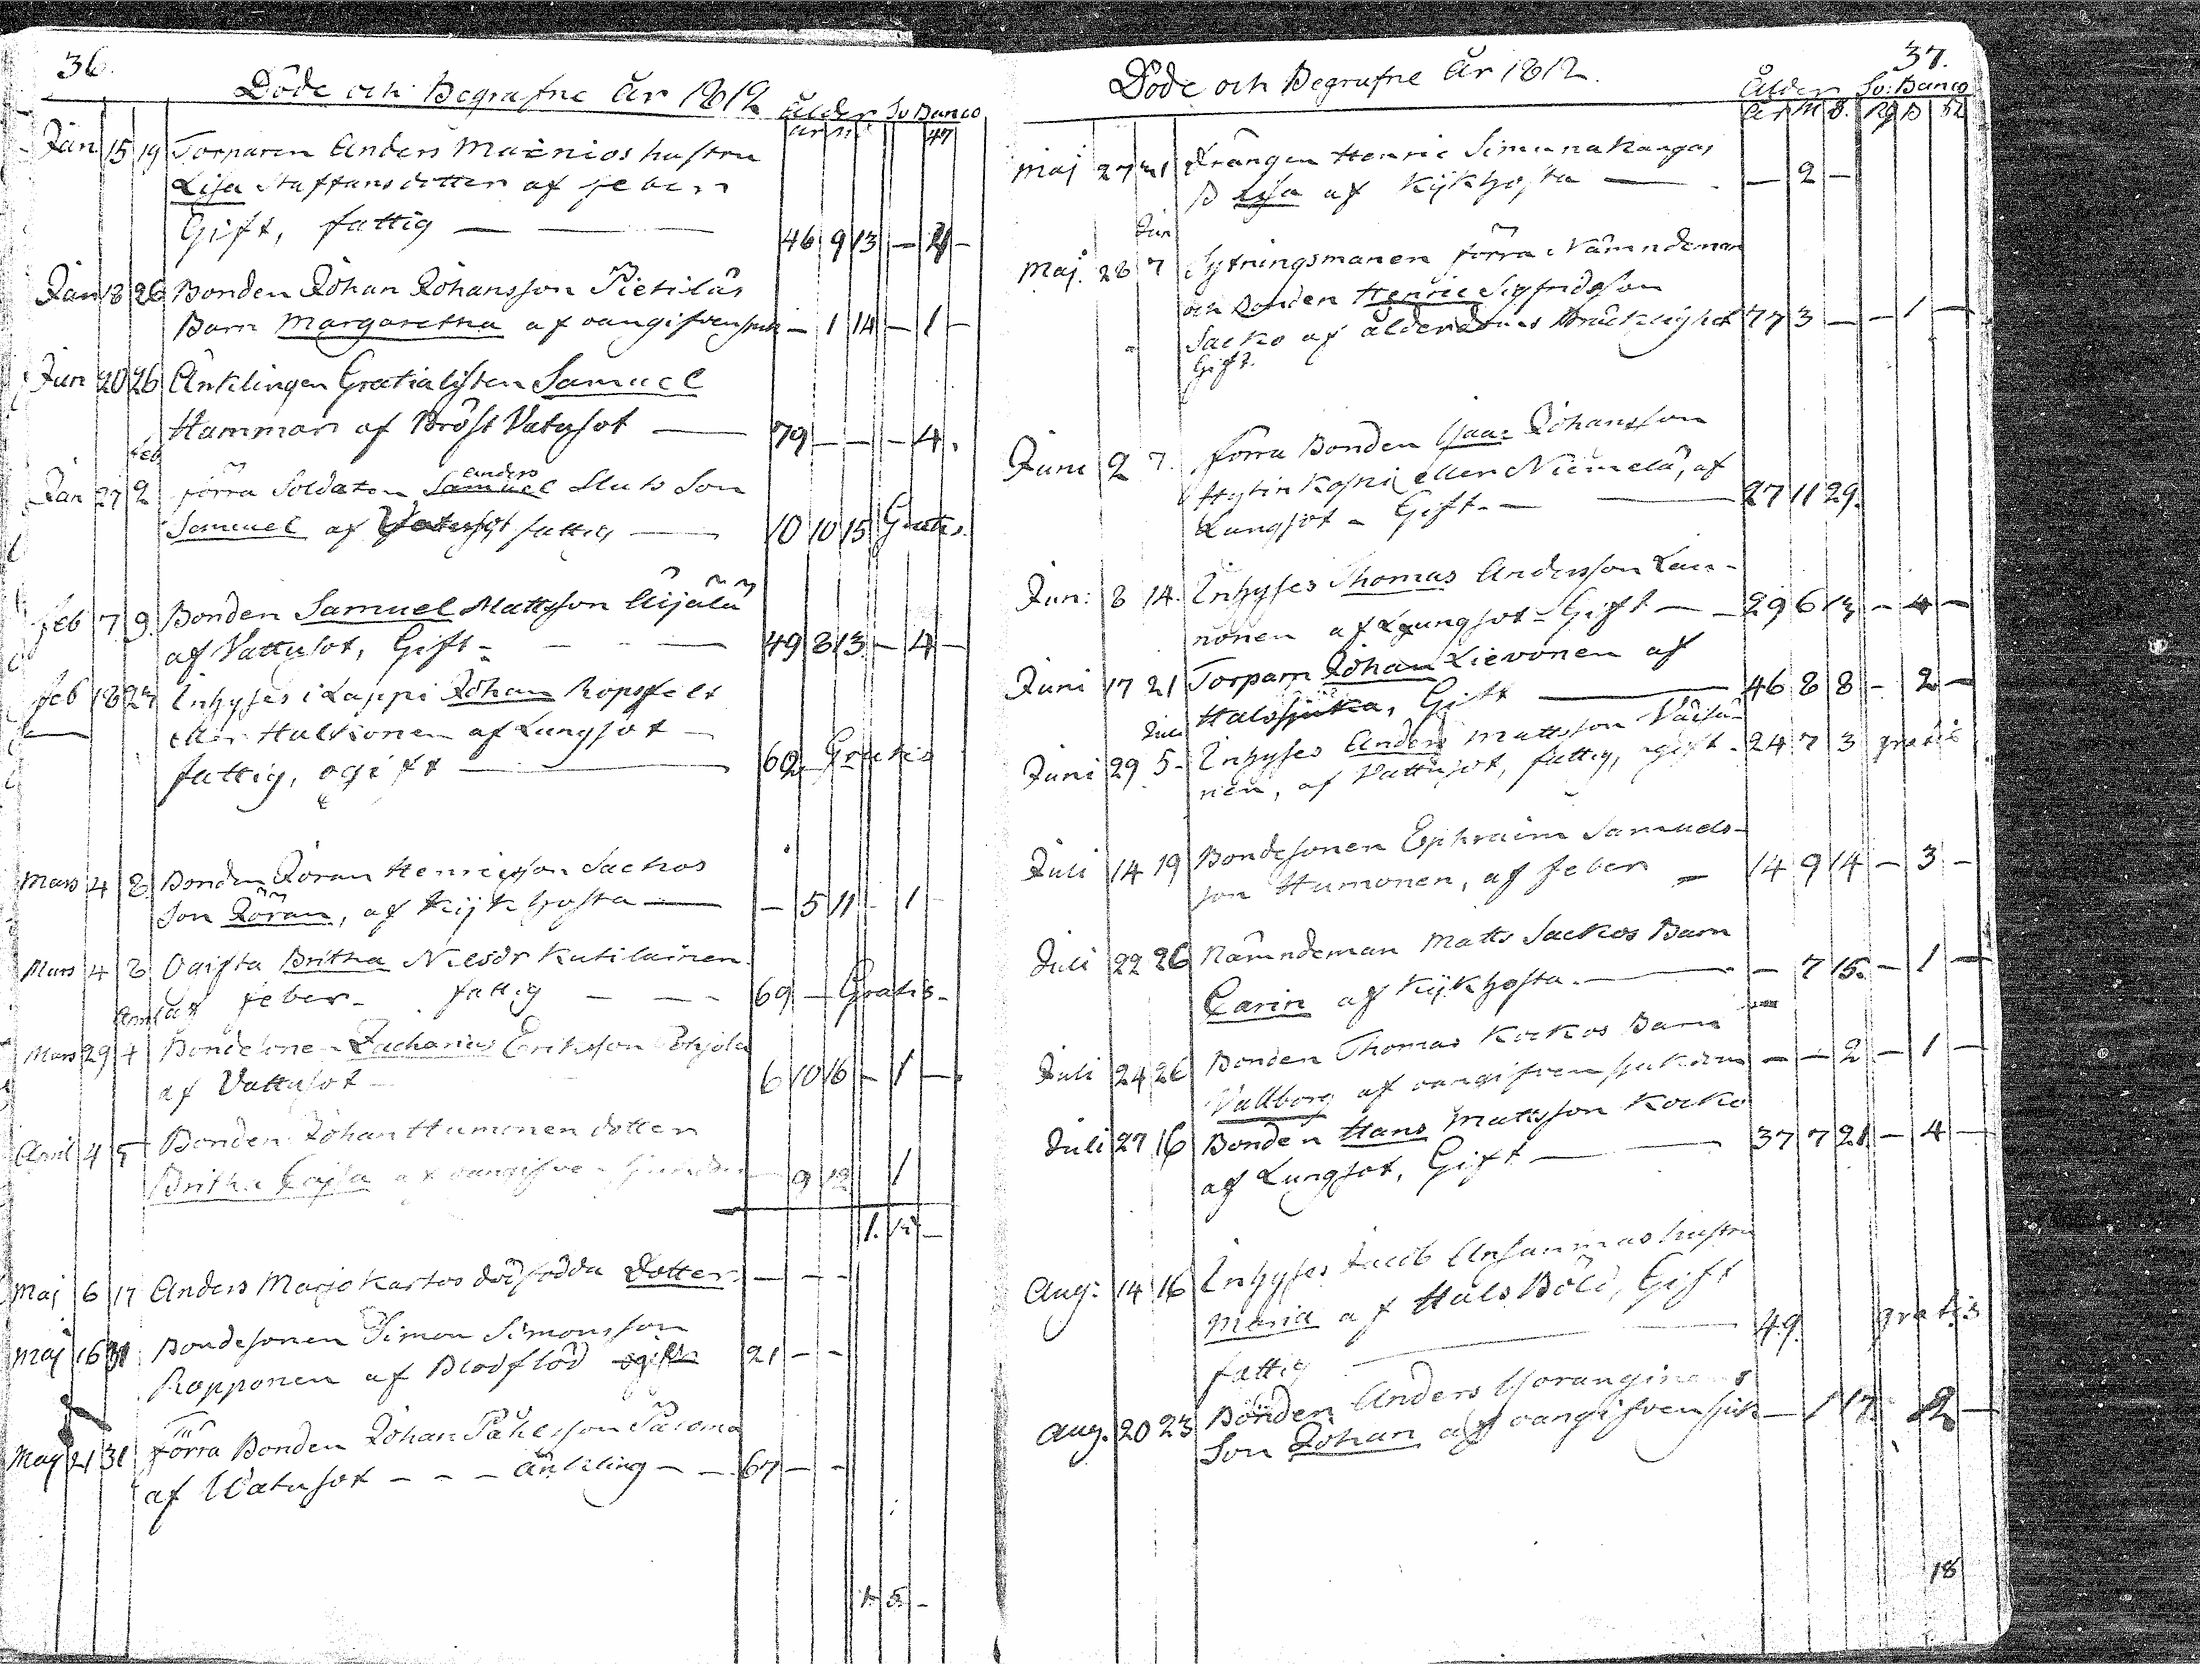 36.
Döde och Begrafne År 1812
Ålder Sv Banco
År M
47
Jan 15 19 Torparen Anders Mainios hustru
Lisa Staffansdotter af feber
Gift, fattig — 46 9 13 — 2 —
Jan 18 26 Bonden Johan Johansson Pietiläs
Barn Margaretha af oangifven — 1 14 — 1 —
Jan 20 26 Änklingen Gratialisten Samuel
Hammar af Bröst Vatusot — 79 — — — 4
feb
Anders
Jan 27 2 förra Soldaten Samuel Sluts Son
Samuel af fattig — 10 10 15 Gratis
feb 7 9 Bonden Samuel Mattsson Äijälä
af Vattusot, Gift — 49 8 13 — 4 —
feb 18 23 Inhyses i Lappi Johan Ropsfelt
eller Hulkonen af Lungsot —
fattig, ogift — 60 Gratis
Mars 4 8 Bonden Jöran Henricsson Sackos
Son Jöran, af Kijkhosta — — 5 11 — 1
Mars 4 8 Ogifta Britha Nilsdr Kutilainen
af feber — fattig — 69 — Gratis —
Mars 29 4 Bondesonen Zacharias Eriksson Pohjola
af Vattusot — 6 10 16 — 1 —
April 4 5 Bonden Johan Humonen dotter
Britha Cajsa af oangifven — 9 12 1
1. 15 —
Maj 6 17 Anders Marjokartos dödfödda Dotter — — —
Maj 16 31 Bondesonen Simon Simonsson
Ropponen af Blodflöd 21 — —
Maj 21 31 förra Bonden Johan
af Watusot — — — änkling — — 67 — —
1 5 —
37.
Döde och Begrafne År 1812.
Ålder Sv: Banco
År M D. Rd
Maj 27 31 Drängen Henric Simunakangas
B Lisa af Kijkhosta — — 2 —
Jun
Maj. 28 7 Sytningsmanen förra Nämndeman
och Bonden Henric Sigfridsson
Sacko af ålderdoms Bräcklighet 77 3 — — 1 —
Gift.
Juni 2 7. förra Bonden Isaac Johansson
Hytinkoski eller Niemelä, af
Lungsot — Gift — 27 11 29.
Jun: 8 14. Inhyses Thomas Andersson Lau-
nonen af Lungsot — Gift — 29 6 13 — 4 —
Juni 17 21 Torparn Johan Lievonen af
Halssjuka, Gift — 46 8 8 — 2 —
Juli
Juni 29 5 — Inhyses Anders Mattsson Väisä-
nen, af Vattusot, fattig, ogift — 24 7 3 gratis
Juli 14 19 Bondesonen Ephraim Samuels-
son Humonen, af feber — 14 9 14 — 3 —
Juli 22 26 Nämndeman Matts Sackos Barn
Carin af Kijkhosta. — — 7 15. — 1 —
Juli 24 26 Bonden Thomas Kockos Barn
Vallborg af oangifven sjukdom — — 2 — 1 —
Juli 27 16 Bonden Hans Mattsson Kocko
af Lungsot, Gift — 37 7 21 — 4 —
Aug: 14 16 Inhyses Jacob hustru
Maria af Hals Böld, Gift
fattig — 49. gratis
Aug. 20 23 Bonden Anders
Son Johan af oangifven sjuk — 1 17 2 —
18